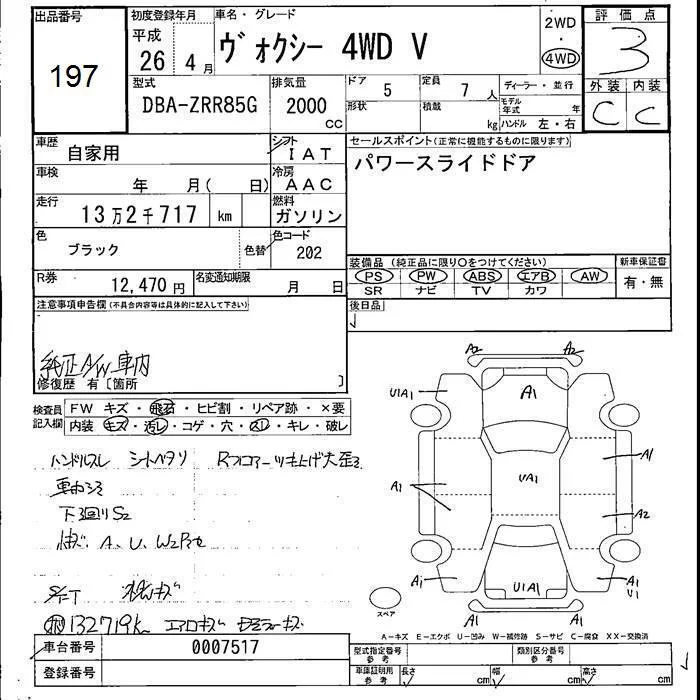 出品番号
197
初度登録年月
平成 26年 4月
車名・グレード
ヴォクシー 4WD V
2WD
・
4WD
評価点
3
外装 内装
C C
型式
DBA-ZRR85G
排気量
2000 CC
ドア 5
定員 7 人
形状
積載 kg
ディーラー・並行
モデル年式 年
ハンドル 左・右
車歴
自家用
シフト
IAT
車検
年 月( 日)
冷房
AAC
走行
13万2千717 km
燃料
ガソリン
色
ブラック
色替
色コード
202
R券
12,470 円
名変通知期限
月 日
セールスポイント(正常に機能するものに限ります)
パワースライドドア
装備品 (純正品に限り○をつけてください)
PS PW ABS エアB AW
SR ナビ TV カワ
新車保証書
有・無
後日品
注意事項申告欄(不具合内容等は具体的に記入して下さい)
純正A/W車内
修復歴 有〔箇所 〕
検査員記入欄
FW キズ・飛石・ヒビ割・リペア跡・×要
内装 キズ・汚レ・コゲ・穴・スレ・キレ・破レ
ハンドルスレ シートヘタリ
下廻りS2
A、U、W2
132719k
A2 A2
U1A1
A1
A1
UA1
A1
A2
A1
U1A1
A1
U1
A1 A1
スペア
A-キズ E-エクボ U-凹み W-補修跡 S-サビ C-腐食 XX-交換済
車台番号
0007517
登録番号
型式指定番号 参考
類別区分番号 参考
車庫証明用 参考
長さ cm 幅 cm 高さ cm